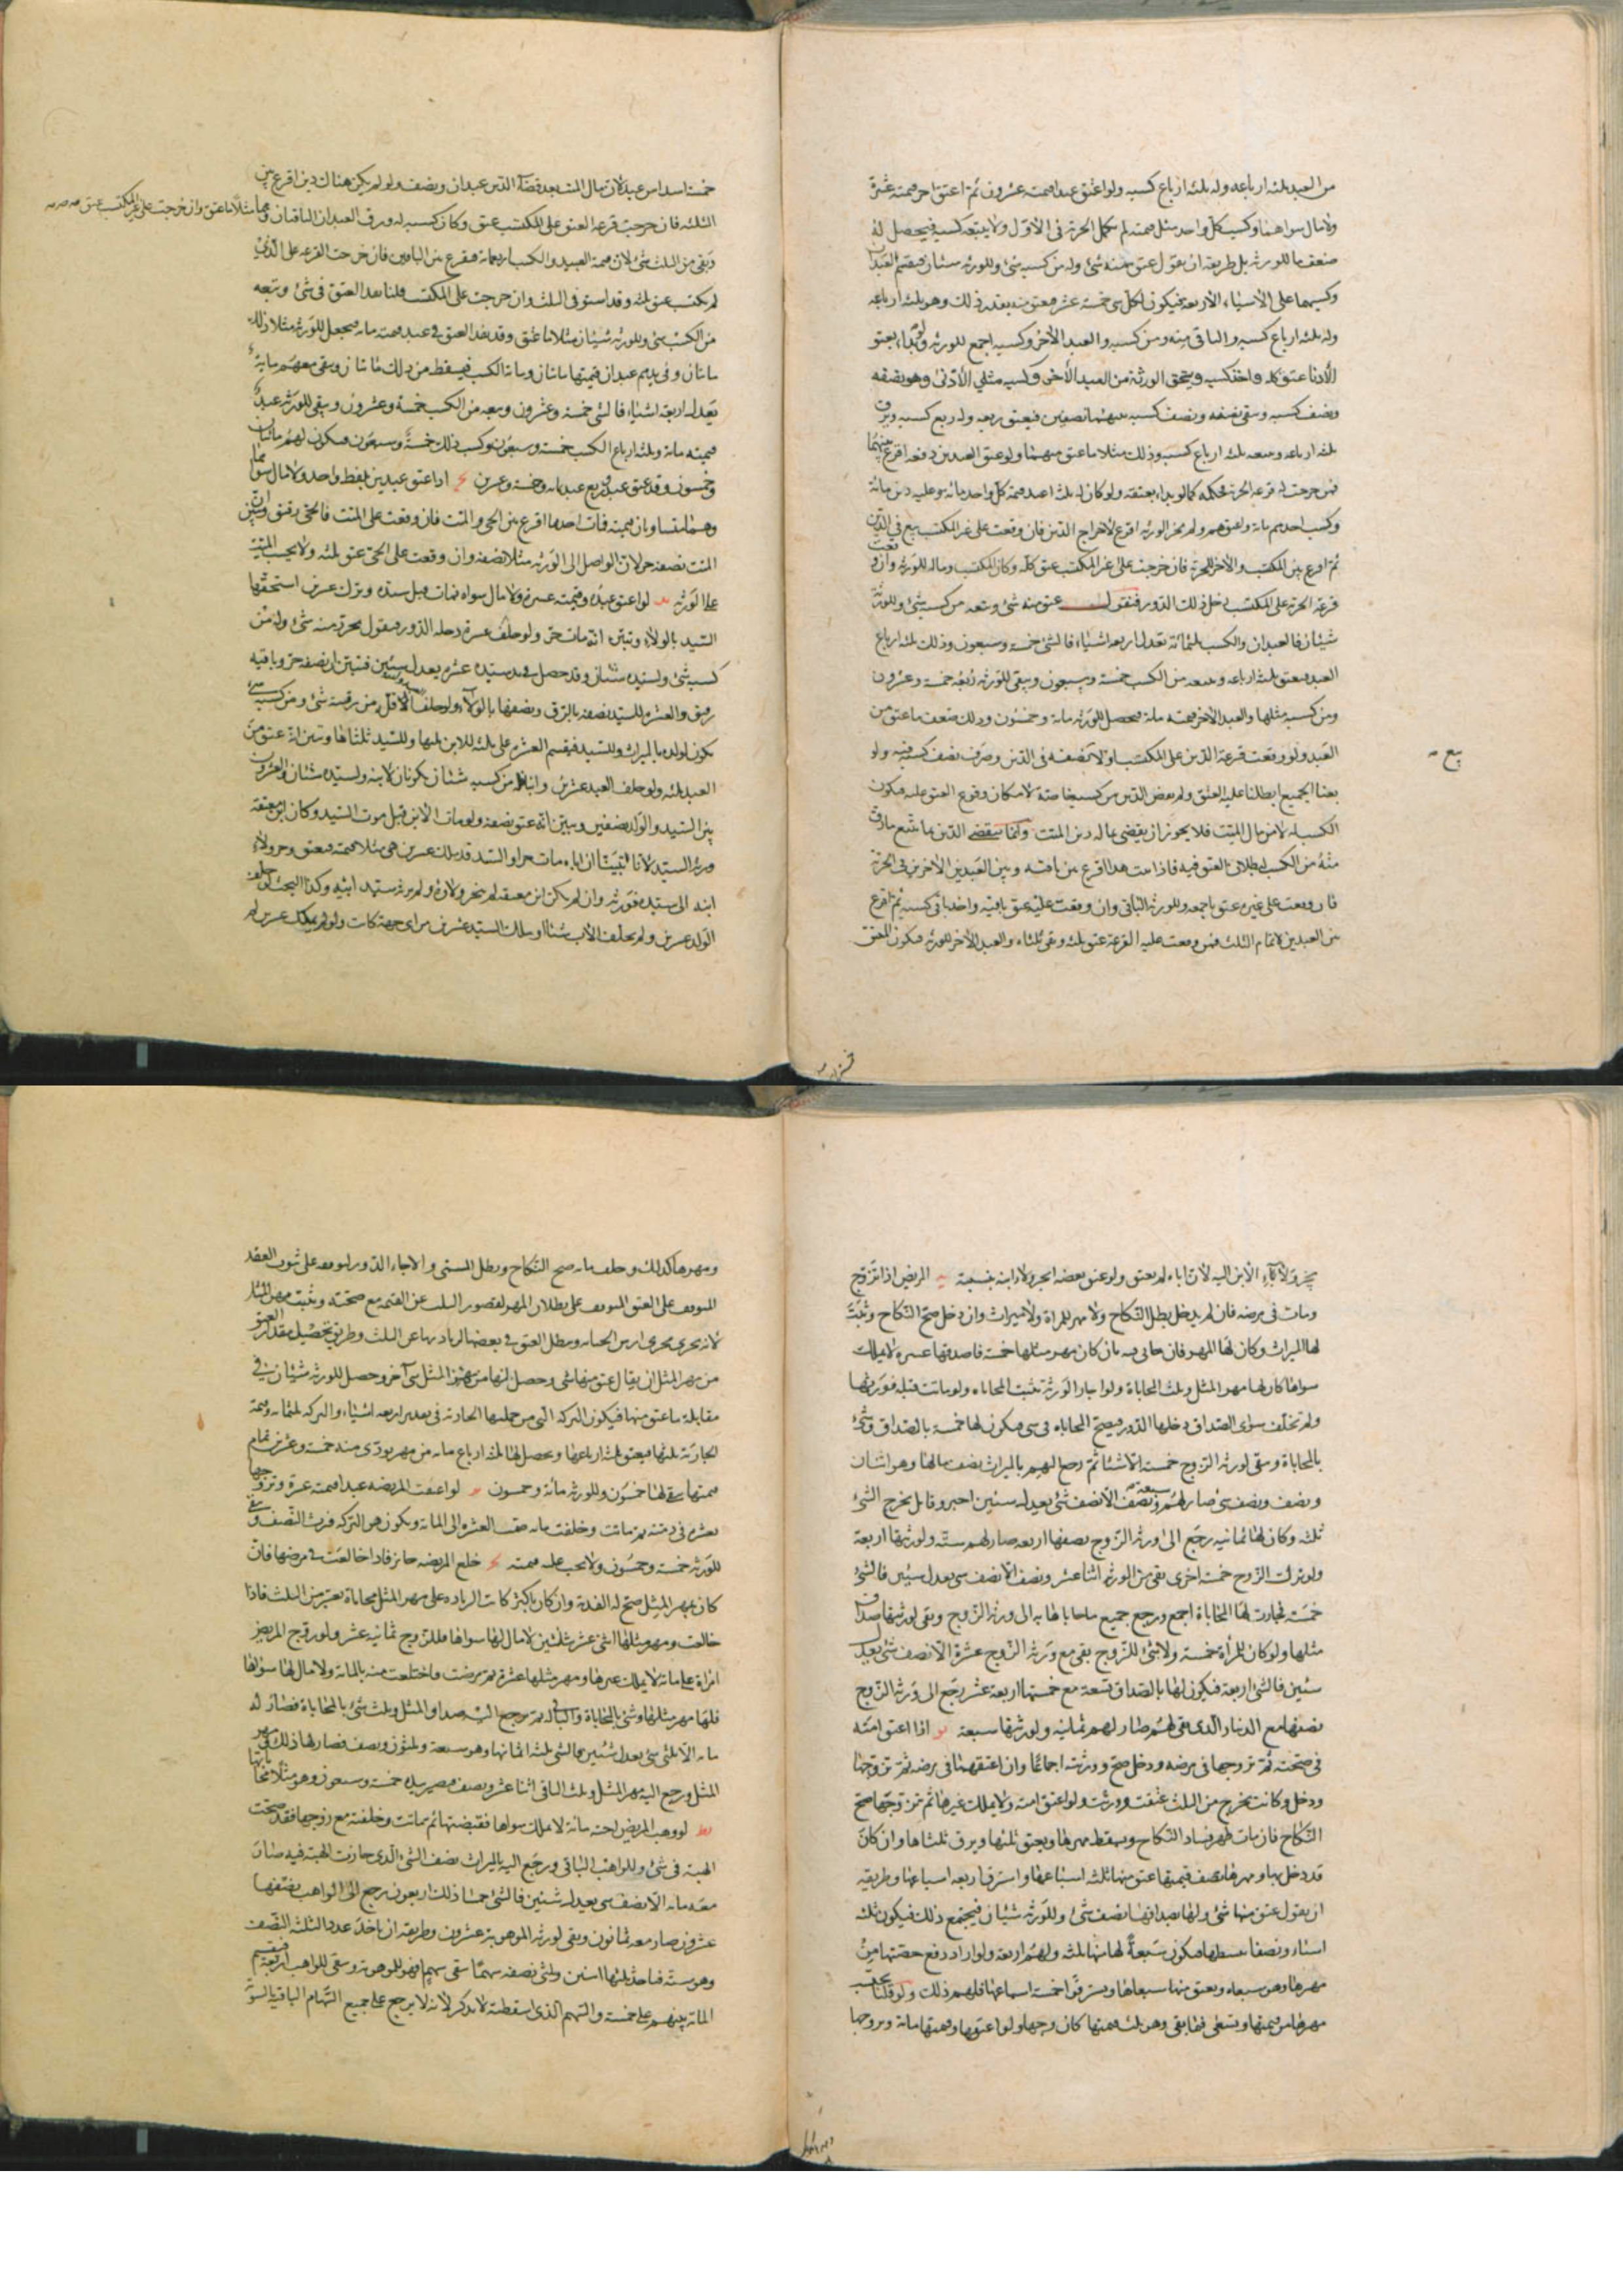 من العبد ثلثة ارباعه وله ثلثة ارباع كسبه ولو اعتق عبدا قيمته عشرون ثم اعتق اخر قيمته عشرة
ولا مال سواهما وكسب كل واحد مثل قيمته لم تكمل الحرية في الاول ولا يتبعه كسبه فيحصل له
ضعف ما للورثة بل طريقه ان يقول عتق منه شئ وله من كسبه شئ وللورثة شيئان فيقسم العبدان
وكسبهما على الاشياء الاربعة فيكون لكل شئ خمسة عشر فيعتق منه بقدر ذلك وهو ثلثة ارباعه
وله ثلثة ارباع كسبه والباقي منه ومن كسبه والعبد الاخر وكسبه اجمع للورثة ولو بدا بعتق
الادنى عتق كله واخذ كسبه ويستحق الورثة من العبد الاخر وكسبه مثلي الادنى وهو نصفه
ونصف كسبه وبقي نصفه ونصف كسبه بينهما نصفين فيعتق ربعه وله ربع كسبه ويرق
ثلثة ارباعه ويتبعه ثلثة ارباع كسبه وذلك مثلا ما عتق منهما ولو عتق العبدين دفعة اقرع بينهما
فمن خرجت له قرعة الحرية فحكمه كما لو بدا بعتقه ولو كان له ثلثة اعبد قيمة كل واحد مائة وعليه دين مائة
وكسب احدهم مائة واعتقهم ولم يجز الورثة اقرع لاخراج الدين فان وقعت على غير المكتسب بيع في الدين
ثم اقرع بين المكتسب والاخر للحرية فان خرجت على غير المكتسب عتق كله وكان المكتسب وماله للورثة وان وقعت
قرعة الحرية على المكتسب دخل ذلك الدور فنقول عتق منه شئ وتبعه من كسبه شئ وللورثة
شيئان فالعبدان والكسب ثلثمائة تعدل اربعة اشياء فالشئ خمسة وسبعون وذلك ثلثة ارباع
العبد فيعتق ثلثة ارباعه ويتبعه من الكسب خمسة وسبعون ويبقى للورثة ربعه خمسة وعشرون
ومن كسبه مثلها والعبد الاخر قيمته مائة فيحصل للورثة مائة وخمسون وذلك ضعف ما عتق من
العبد ولو وقعت قرعة الدين على المكتسب اولا لم نصفه في الدين وصرف نصف كسبه فيه ولو
بعنا الجميع ابطلنا عليه العتق ولم يقض الدين من كسبه خاصة لامكان وقوع العتق عليه فيكون
الكسب له لا من مال الميت فلا يجوز ان يقضى بماله دين الميت وانما نقضي الدين بما نبيع ما رق
منه من الكسب لبطلان العتق فيه فاذا تمت هذا اقرع بين باقيه وبين العبدين الاخرين في الحرية
فان وقعت على غيره عتق باجمعه وللورثة الباقي وان وقعت عليه عتق باقيه واخذ باقي كسبه ثم اقرع
بين العبدين لاتمام الثلث فمن وقعت عليه القرعة عتق ثلثه وبقي ثلثاه والعبد الاخر للورثة فيكون المعتق
بيع
خمسة اسداس عبد لان مال الميت بعد قضاء الدين عبدان ونصف ولو لم يكن هناك دين اقرع بين
الثلثة فان خرجت قرعة العتق على المكتسب عتق وكان كسبه له ورق العبدان الباقيان وهما مثلا ما عتق وان خرجت على غير المكتسب عتق
وبقي من الثلث شئ لان قيمة العبيد والكسب اربعمائة فيقرع بين الباقيين فان خرجت القرعة على الذي
لم يكتسب عتق ثلثه وقد استوفى الثلث وان خرجت على المكتسب قلنا نفذ العتق في شئ وتبعه
من الكسب شئ وللورثة شيئان مثلا ما عتق وقد نفذ العتق في عبد قيمته مائة فيجعل للورثة مثلا ذلك
مائتان وفي يدهم عبدان قيمتها مائتان ومائة الكسب فيسقط من ذلك مائتان ويبقى معهم مائة
تعدل اربعة اشياء فالشئ خمسة وعشرون وتبعه من الكسب خمسة وعشرون ويبقى للورثة عبد
قيمته مائة وثلثة ارباع الكسب خمسة وسبعون وكسب ذلك خمسة وسبعون فيكون لهم مائتان
وخمسون وقد عتق عبد وربع عبد مائة وخمسة وعشرين اذا اعتق عبدين بلفظ واحد ولا مال سواهما
وهما متساويان قيمة فمات احدهما اقرع بين الحي والميت فان وقعت على الميت فالحي رقيق وتبين ان
الميت نصفه حر لان الواصل الى الورثة مثلا نصفه وان وقعت على الحي عتق ثلثه ولا يحسب الميت
على الورثة لو اعتق عبده وقيمته عشرة ولا مال سواه فمات قبل سيده وترك عشرين استحقها
السيد بالولاء وتبين انه مات حر ولو خلف عشرة دخله الدور فيقول تحرر منه شئ وله من
كسبه شئ ولسيده شيئان وقد حصل في يد سيده عشرة يعدل شيئين فتبين ان نصفه حر وباقيه
رقيق والعشرة للسيد نصفه بالرق ونصفها بالولاء
يكون لولده بالميراث وللسيد فيقسم العشرة على ثلثة للابن ثلثها وللسيد ثلثاها وتبين انه عتق من
العبد ثلثه ولو خلف العبد عشرين وابنا فله من كسبه شيئان يكونان لابنه ولسيده شيئان والعشرون
بين السيد والولد نصفين وتبين انه عتق نصفه ولو مات الابن قبل موت السيد وكان ابن معتقة
ورثه السيد لانا تبيّنا ان اباه مات حرا والسيد قد ملك عشرين هي مثلا قيمته فعتق وجر ولاء
ابنه الى سيده فورثه وان لم يكن ابن معتقة لم ينجر ولاؤه ولم يرثه سيد ابيه وكذا البحث لو خلف
الولد عشرين ولم يخلف الاب شيئا او ملك السيد عشرين من اى جهة كانت ولو لم يملك عشرين لم
ينجر ولاء الابن اليه لان اباه لم يعتق ولو عتق بعضه انجر ولاء ابنه بنسبته يه المريض اذا تزوج
ومات في مرضه فان لم يدخل بطل النكاح ولا مهر للمراة ولا ميراث وان دخل صح النكاح وثبت
لها الميراث وكان لها المهر فان حابى فيه بان كان مهر مثلها خمسة فاصدقها عشرة لا يملك
سواها كان لها مهر المثل وثلث المحاباة ولو اجاز الورثة تثبت المحاباة ولو ماتت قبله فورثها
ولم تخلف سوى الصداق دخلها الدور فيصح المحاباة في شئ فيكون لها خمسة بالصداق وشئ
بالمحاباة وبقي لورثة الزوج خمسة الا شيئا ثم رجع اليهم بالميراث نصف مالها وهو اثنان
ونصف ونصف شئ صار لهم سبعة ونصف الا نصف شئ يعدل شيئين اجبر وقابل يخرج الشئ
ثلثة وكان لها ثمانية رجع الى ورثة الزوج نصفها اربعة صار لهم ستة ولورثتها اربعة
ولو ترك الزوج خمسة اخرى بقي من الورثة اثنا عشر ونصف الا نصف شئ يعدل شيئين فالشئ
خمسة فجازت لها المحاباة اجمع ورجع جميع ما حاباها به الى ورثة الزوج وبقي لورثتها صداق
مثلها ولو كان للمرأة خمسة ولا شئ للزوج بقي مع ورثة الزوج عشرة الا نصف شئ يعدل
شيئين فالشئ اربعة فيكون لها بالصداق تسعة مع خمستها اربعة عشر رجع الى ورثة الزوج
نصفها مع الدينار الذي بقي لهم صار لهم ثمانية ولورثتها سبعة يو اذا اعتق امته
في صحته ثم تزوجها في مرضه ودخل صح وورثته اجماعا وان اعتقها في مرضه ثم تزوجها
ودخل وكانت تخرج من الثلث عتقت وورثت ولو اعتق امته ولا يملك غيرها ثم تزوجها صح
النكاح فان مات ظهر فساد النكاح ويسقط مهرها ويعتق ثلثها ويرق ثلثاها وان كان
قد دخل بها ومهرها نصف قيمتها عتق منها ثلثة اسباعها واسترق اربعة اسباعها وطريقه
ان يقول عتق منها شئ ولها بصداقها نصف شئ وللورثة شيئان فيجتمع ذلك فيكون ثلثة
اشياء ونصفا نبسطها فيكون سبعة لها منها ثلثة ولهم اربعة ولو اراد دفع حصتها من
مهرها وهو سبعاه ويعتق منها سبعاها ويسترق خمسة اسباعها فلهم ذلك ولو قلنا يحتسب
مهرها من قيمتها وتسعى فيما بقي وهو ثلث قيمتها كان وجها ولو اعتقها وقيمتها مائة وتزوجها
ومهرها كذلك وخلف مائة صح النكاح وبطل المسمى والا جاء الدور لتوقفه على ثبوت العقد
المتوقف على العتق المتوقف على بطلان المهر لقصور الثلث عن القيمة مع صحته ويثبت مهر المثل
لانه يجري مجرى ارش الجناية ويبطل العتق في بعضها لزيادتها عن الثلث وطريق تحصيل مقدار العتق
من مهر المثل ان يقال عتق منها شئ وحصل لها من مهر المثل شئ آخر وحصل للورثة شيئان في
مقابلة ما عتق منها فيكون التركة التي من جملتها الجارية في تقدير اربعة اشياء والتركة ثلثمائة وقيمة
الجارية ثلثها فيعتق ثلثة ارباعها ويحصل لها ثلثة ارباع مائة من مهر يؤدى منه خمسة وعشرين تمام
قيمتها بقي لها خمسون وللورثة مائة وخمسون يز لو اعتقت المريضة عبدا قيمته عشرة وتزوجها
بعشرة في ذمته ثم ماتت وخلفت مائة ضمت العشرة الى المائة ويكون هو التركة فيرث النصف ويبقى
للورثة خمسة وخمسون ولا يحسب عليه قيمته يح خلع المريضة جايز فاذا خالعت في مرضها فان
كان بمهر المثل صح له الفدية وان كان باكثر كانت الزيادة على مهر المثل محاباة يعتبر من الثلث فاذا
خالعت ومهر مثلها اثني عشر بثلثين لا مال لها سواها فللزوج ثمانية عشر ولو تزوج المريض
امراة على مائة لا يملك غيرها ومهر مثلها عشرة ثم مرضت فاختلعت منه بالمائة ولا مال لها سواها
فلها مهر مثلها وشئ بالمحاباة والباقي له ثم يرجع اليه صداق المثل وثلث شئ بالمحاباة فصار له
مائة الا ثلثي شئ يعدل شيئين فالشئ ثلثة اثمانها وهو سبعة وثلثون ونصف فصار لها ذلك ومهر
المثل ورجع اليه مهر المثل وثلث الباقي اثنا عشر ونصف فيصير بيده خمسة وسبعون وهو مثلا محاباتها
يط لو وهب المريض اخته مائة لا يملك سواها فقبضتها ثم ماتت وخلفته مع زوجها فقد صحت
الهبة في شئ وللواهب الباقي ورجع اليه بالميراث نصف الشئ الذي جازت الهبة فيه صار
معه مائة الا نصف شئ يعدل شيئين فالشئ خمسا ذلك اربعون رجع الى الواهب نصفها
عشرون صار معه ثمانون وبقي لورثة الموهوبة عشرون وطريقه ان ياخذ عدد الثلثة النصف
وهو ستة فياخذ ثلثها اثنين ويلقي نصفه سهما يبقى سهم فهو للموهوبة وبقي للواهب اربعة فيقسم
المائة بينهم على خمسة والسهم الذي اسقطته لا يذكر لانه لا يرجع على جميع السهام الباقية بالسوية